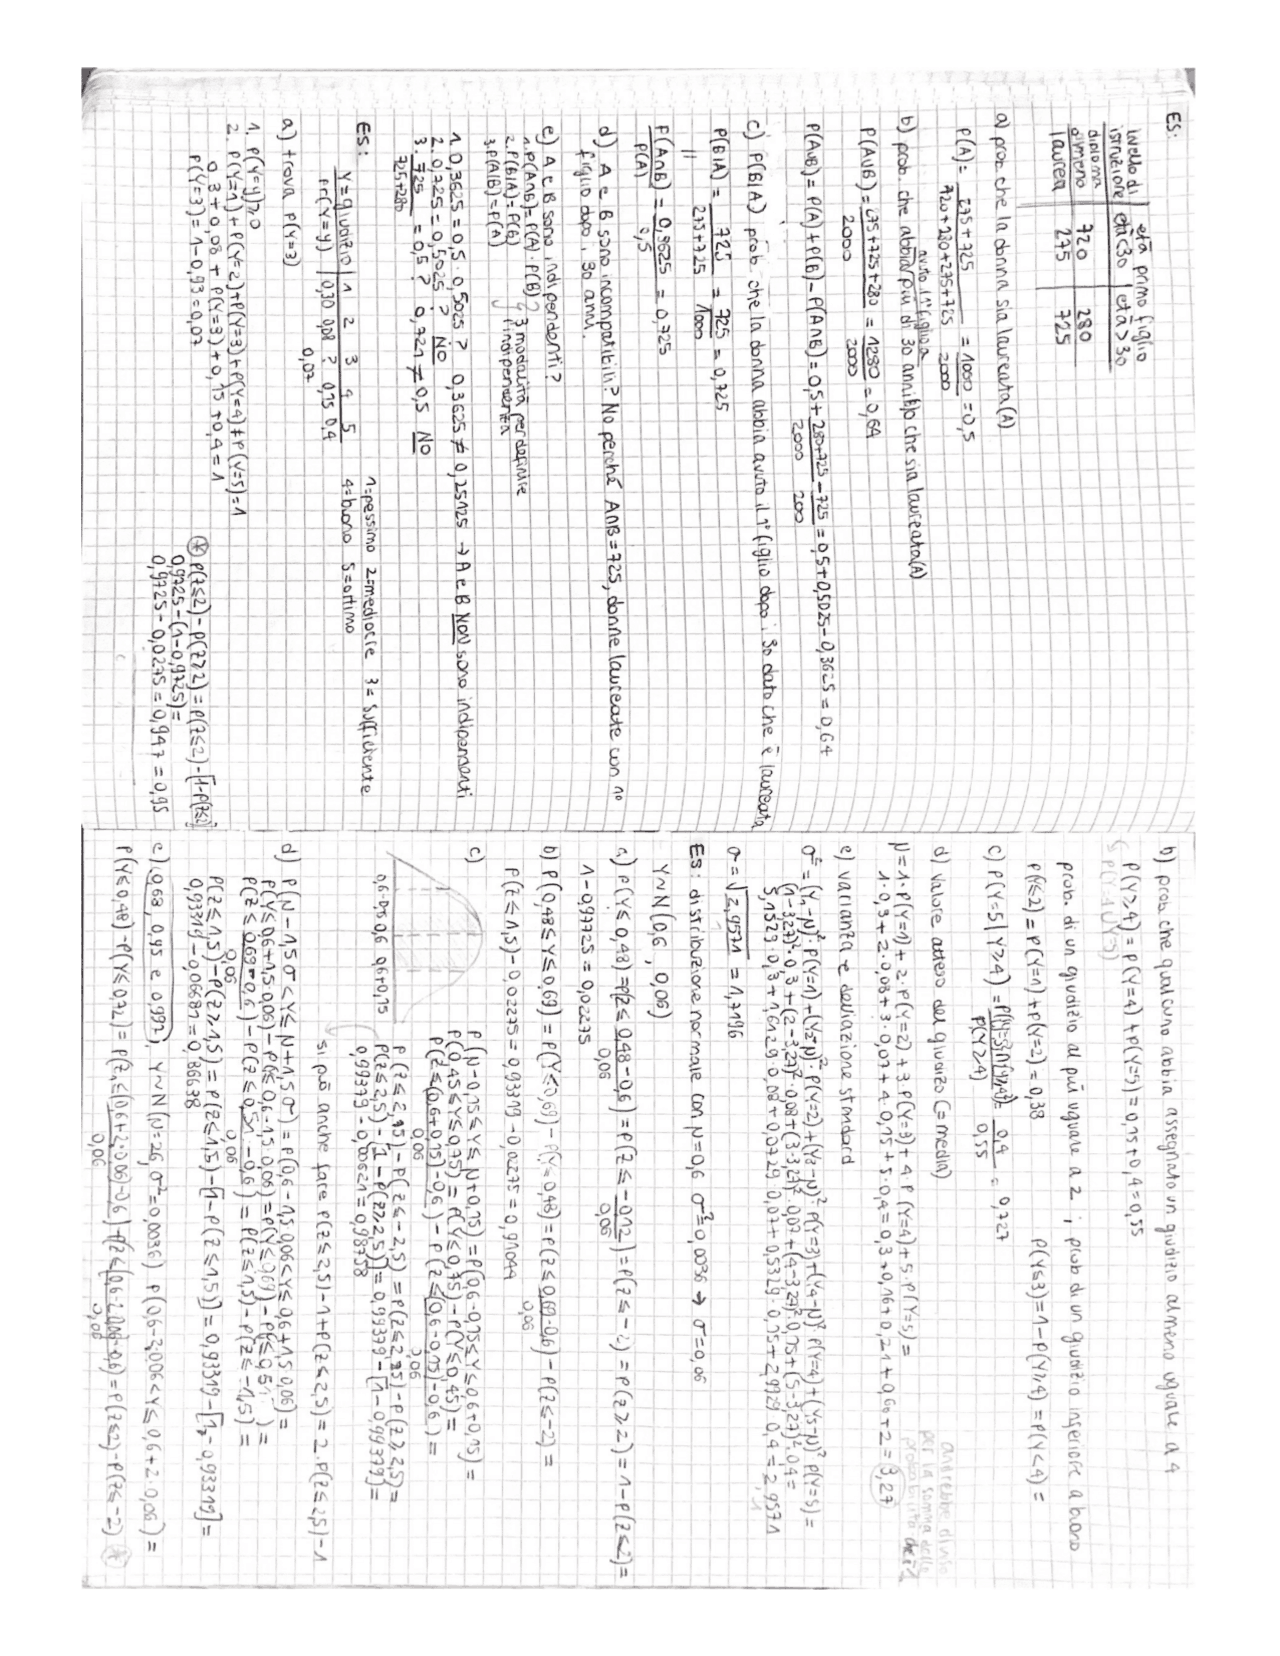 ES:
livello di istruzione | età primo figlio
età<30 | età>30
diploma o meno 720 280
laurea 275 725
a) prob. che la donna sia laureata (A)
P(A) = 275+725 / 720+280+275+725 = 1000 / 2000 = 0,5
b) prob. che abbia avuto 1° figlio a più di 30 anni (B) o che sia laureata (A)
P(A∪B) = 275+725+280 / 2000 = 1280 / 2000 = 0,64
P(A∪B) = P(A) + P(B) - P(A∩B) = 0,5 + 280+725 / 2000 - 725 / 200 = 0,5 + 0,5025 - 0,3625 = 0,64
c) P(B|A) prob. che la donna abbia avuto il 1° figlio dopo i 30 dato che è laureata
P(B|A) = 725 / 275+725 = 725 / 1000 = 0,725
||
P(A∩B) / P(A) = 0,3625 / 0,5 = 0,725
d) A e B sono incompatibili? No perché A∩B = 725, donne laureate con 1°
figlio dopo i 30 anni.
e) A e B sono indipendenti?
1. P(A∩B) = P(A)·P(B)
2. P(B|A) = P(B)
3. P(A|B) = P(A)
3 modalità per definire l'indipendenza
1. 0,3625 = 0,5 · 0,5025 ? 0,3625 ≠ 0,25125 → A e B NON sono indipendenti
2. 0,725 = 0,5025 ? NO
3. 725 / 725+280 = 0,5 ? 0,721 ≠ 0,5 NO
ES:
1=pessimo 2=mediocre 3=sufficiente
4=buono 5=ottimo
Y=giudizio | 1 2 3 4 5
Pr(Y=y) | 0,30 0,08 ? 0,15 0,4
0,07
a) trova P(Y=3)
1. P(Y=y)≥0
2. P(Y=1)+P(Y=2)+P(Y=3)+P(Y=4)+P(Y=5)=1
0,3+0,08+P(Y=3)+0,15+0,4=1
P(Y=3)=1-0,93=0,07
⊛ P(Z≤2)-P(Z≥2)=P(Z≤2)-[1-P(Z≤2)]
0,9725-(1-0,9725)=
0,9725-0,0275=0,947=0,95
b) prob. che qualcuno abbia assegnato un giudizio almeno uguale a 4
P(Y≥4) = P(Y=4)+P(Y=5) = 0,15+0,4=0,55
↳ P(Y=4∪Y=5)
prob. di un giudizio al più uguale a 2 ; prob di un giudizio inferiore a buono
P(Y≤2)=P(Y=1)+P(Y=2)=0,38 P(Y≤3)=1-P(Y≥4)=P(Y<4)=
c) P(Y=5|Y≥4) = P(Y=5∩Y≥4) / P(Y≥4) = 0,4 / 0,55 = 0,727
d) valore atteso del giudizio (=media)
andrebbe diviso per la somma delle probabilità che è 1
μ=1·P(Y=1)+2·P(Y=2)+3·P(Y=3)+4·P(Y=4)+5·P(Y=5)=
1·0,3+2·0,08+3·0,07+4·0,15+5·0,4=0,3+0,16+0,21+0,60+2=3,27
e) varianza e deviazione standard
σ²=(Y₁-μ)²·P(Y=1)+(Y₂-μ)²·P(Y=2)+(Y₃-μ)²P(Y=3)+(Y₄-μ)²P(Y=4)+(Y₅-μ)²P(Y=5)=
(1-3,27)²·0,3+(2-3,27)²·0,08+(3-3,27)²·0,07+(4-3,27)²·0,15+(5-3,27)²·0,4=
5,1529·0,3+1,6129·0,08+0,0729·0,07+0,5329·0,15+2,9929·0,4=2,9571
σ=√2,9571 = 1,7196
ES: distribuzione normale con μ=0,6 σ²=0,0036 → σ=0,06
Y~N(0,6, 0,06)
a) P(Y≤0,48)=P(Z≤ 0,48-0,6 / 0,06)=P(Z≤ -0,12 / 0,06)=P(Z≤-2)=P(Z≥2)=1-P(Z≤2)=
1-0,97725=0,02275
b) P(0,48≤Y≤0,69)=P(Y≤0,69)-P(Y≤0,48)=P(Z≤ 0,69-0,6 / 0,06)-P(Z≤-2)=
P(Z≤1,5)-0,02275=0,93319-0,02275=0,91044
c) P(μ-0,15≤Y≤μ+0,15)=P(0,6-0,15≤Y≤0,6+0,15)=
P(0,45≤Y≤0,75)=P(Y≤0,75)-P(Y≤0,45)=
P(Z≤ (0,6+0,15)-0,6 / 0,06)-P(Z≤ (0,6-0,15)-0,6 / 0,06)=
P(Z≤2,5)-P(Z≤-2,5)=P(Z≤2,5)-P(Z≥2,5)=
P(Z≤2,5)-[1-P(Z≥2,5)]=0,99379-[1-0,99379]=
0,99379-0,00621=0,98758
0,6-0,15 0,6 0,6+0,15
si può anche fare P(Z≤2,5)-1+P(Z≤2,5)=2·P(Z≤2,5)-1
d) P(μ-1,5σ<Y≤μ+1,5σ)=P(0,6-1,5·0,06<Y≤0,6+1,5·0,06)=
P(Y≤0,6+1,5·0,06)-P(Y≤0,6-1,5·0,06)=P(Y≤0,69)-P(Y≤0,51)=
P(Z≤ 0,69-0,6 / 0,06)-P(Z≤ 0,51-0,6 / 0,06)=P(Z≤1,5)-P(Z≤-1,5)=
P(Z≤1,5)-P(Z≥1,5)=P(Z≤1,5)-[1-P(Z≤1,5)]=0,93319-[1-0,93319]=
0,93319-0,06681=0,86638
e) 0,68, 0,95 e 0,997, Y~N(μ=26, σ²=0,0036) P(0,6-2·0,06<Y≤0,6+2·0,06)=
P(Y≤0,48)-P(Y≤0,72)=P(Z≤ (0,6+2·0,06)-0,6 / 0,06)-P(Z≤ (0,6-2·0,06)-0,6 / 0,06)=P(Z≤2)-P(Z≤-2) ⊛